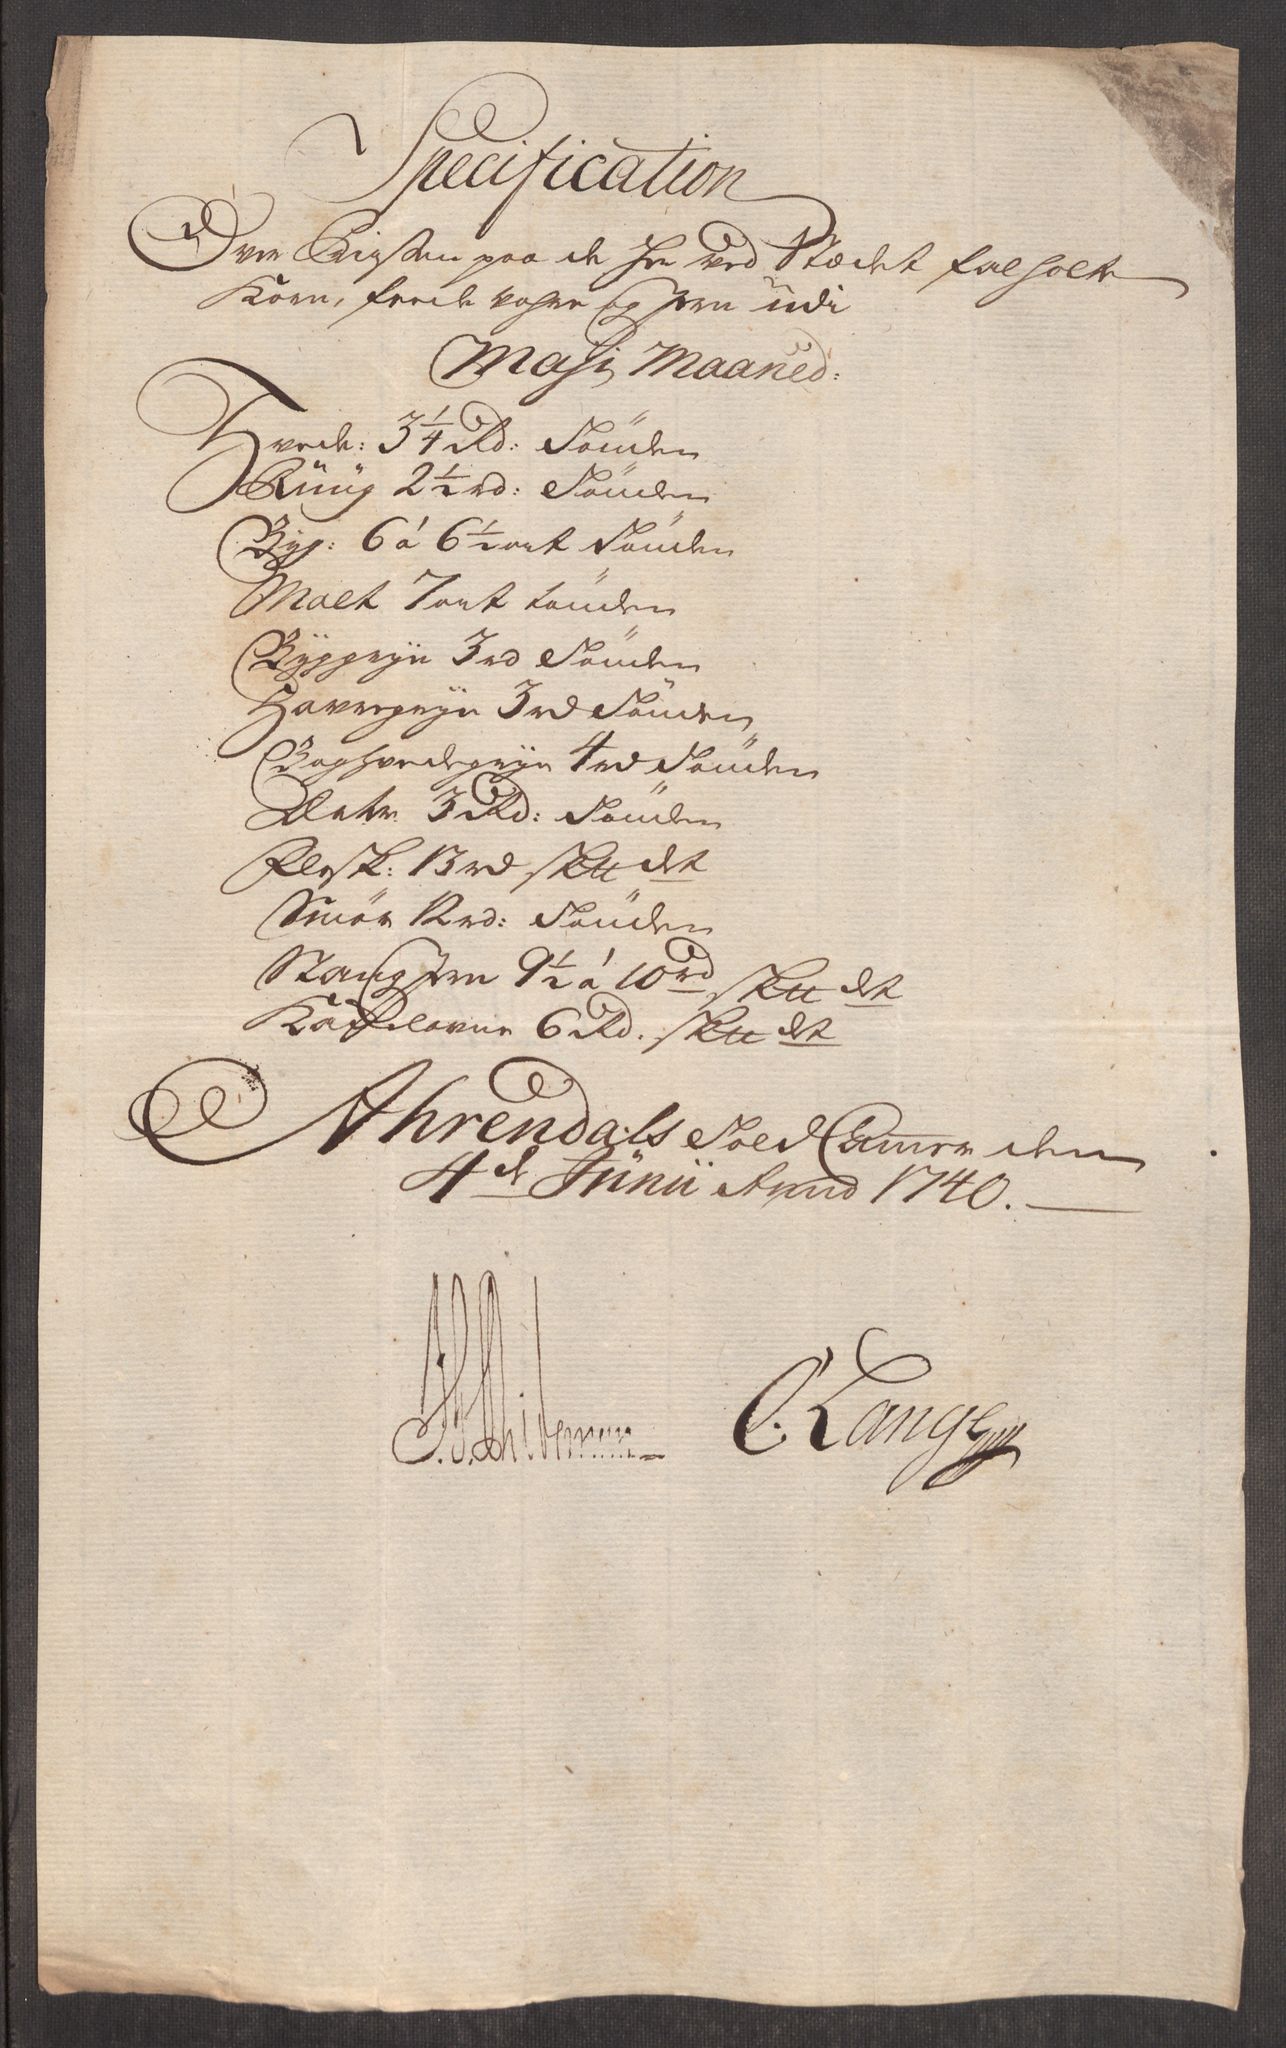 Specification
Over Priisen paa de her ved Stædet falholte
Korn, feede vahre og Jern udi
Maji Maaned:
Hvede: 3 1/4 Rd: Tönden
Rüüg 2 1/2 rd: Tönden
Byg: 6 á 6 1/2 ort Tönden
Malt 7 ort tönden
Byggryn 3 rd Tönden
Havregryn 3 rd Tönden
Boghvedegryn 4 rd Tönden
Erter 3 Rd: Tönden
Flesk: 13 rd sk℔det
Smör 12 rd: Tönden
Stang Jern 9 1/2 á 10 rd sk℔det
Kakelovne 6 Rd. sk℔det
Ahrendals Told Cammer den
4de Junii Anno 1740.
C. Lange